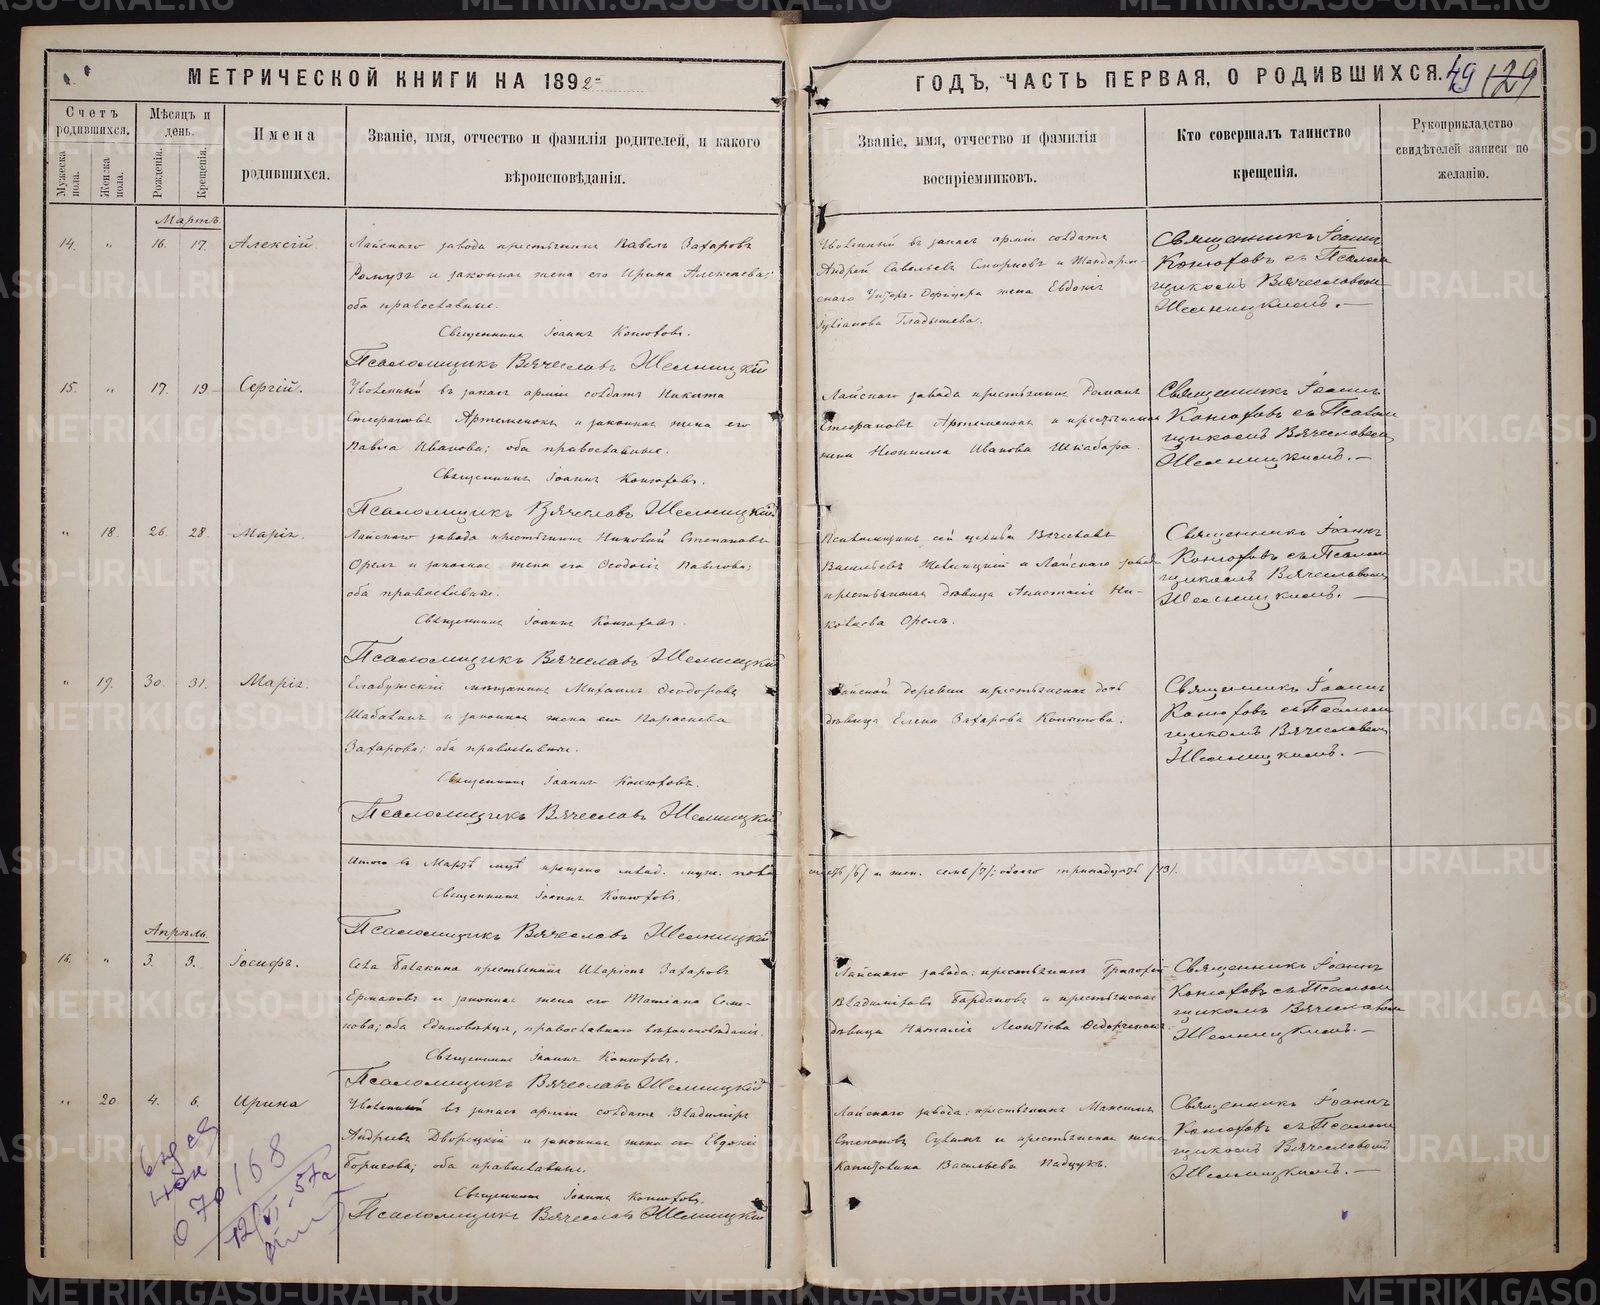 МЕТРИЧЕСКОЙ КНИГИ НА 1892
ГОДЪ, ЧАСТЬ ПЕРВАЯ, О РОДИВШИХСЯ. 49 129
Счетъ родившихся.
Мужеска пола.
Женска пола.
Мѣсяцъ и день.
Рожденія.
Крещенія.
Имена
родившихся.
Званіе, имя, отчество и фамилія родителей, и какого
вѣроисповѣданія.
Званіе, имя, отчество и фамилія
воспріемниковъ.
Кто совершалъ таинство
крещенія.
Рукоприкладство
свидѣтелей записи по
желанію.
Мартъ.
14. " 16. 17. Алексій.
Лайскаго завода крестьянинъ Павелъ Захаровъ
Ромузъ и законная жена его Ирина Алексѣева;
оба православные.
Священникъ Іоаннъ Конюховъ.
Псаломщикъ Вячеславъ Желницкій
Уволенный въ запасъ арміи солдатъ
Андрей Савельевъ Смирновъ и Жандарм-
скаго Унтеръ-Офицера жена Евдокія
Гладышева.
Священникъ Іоаннъ
Конюховъ съ Псалом
щикомъ Вячеславомъ
Желницкимъ.
15. " 17 19 Сергій.
Уволенный въ запасъ арміи солдатъ Никита
Стефановъ Артеменокъ и законная жена его
Павла Иванова; оба православные.
Священникъ Іоаннъ Конюховъ.
Псаломщикъ Вячеславъ Желницкій
Лайскаго завода крестьянинъ Романъ
Стефановъ Артеменокъ и крестьянская
жена Неонилла Иванова Шкабара.
Священникъ Іоаннъ
Конюховъ съ Псалом
щикомъ Вячеславомъ
Желницкимъ.
" 18. 26. 28. Марія.
Лайскаго завода крестьянинъ Николай Степановъ
Орелъ и законная жена его Ѳеодосія Павлова;
оба православные.
Священникъ Іоаннъ Конюховъ.
Псаломщикъ Вячеславъ Желницкій
Псаломщикъ сей церкви Вячеславъ
Васильевъ Желницкій и Лайскаго завода
крестьянская дѣвица Анастасія Ни-
колаева Орелъ.
Священникъ Іоаннъ
Конюховъ съ Псалом
щикомъ Вячеславомъ
Желницкимъ.
" 19. 30. 31. Марія.
Елабужскій мѣщанинъ Михаилъ Ѳеодоровъ
Шабалинъ и законная жена его Параскева
Захарова; оба православные.
Священникъ Іоаннъ Конюховъ.
Псаломщикъ Вячеславъ Желницкій
Лайской деревни крестьянская дочь
дѣвица Елена Захарова Копытова.
Священникъ Іоаннъ
Конюховъ съ Псалом
щикомъ Вячеславомъ
Желницкимъ.
Итого въ Мартѣ м-цѣ крещено млад. муж. пола
шесть /6/ и жен. семь /7/; обоего тринадцать /13/.
Священникъ Іоаннъ Конюховъ.
Псаломщикъ Вячеславъ Желницкій
Апрѣль.
16. " 3. 3. Іосифъ.
Села Балакина крестьянинъ Иларіонъ Захаровъ
Ермаковъ и законная жена его Татіана Семе-
нова; оба Единовѣрцы, православнаго вѣроисповѣданія.
Священникъ Іоаннъ Конюховъ.
Псаломщикъ Вячеславъ Желницкій
Лайскаго завода: крестьянинъ
Владиміровъ и крестьянская
дѣвица Наталія Леонтіева
Священникъ Іоаннъ
Конюховъ съ Псалом
щикомъ Вячеславомъ
Желницкимъ.
" 20 4. 6. Ирина
Уволенный въ запасъ арміи солдатъ Владиміръ
Андреевъ Дворецкій и законная жена его Евдокія
Борисова; оба православные.
Священникъ Іоаннъ Конюховъ.
Псаломщикъ Вячеславъ Желницкій
Лайскаго завода: крестьянинъ Максимъ
Степановъ и крестьянская жена
Капитолина Васильева Падчукъ.
Священникъ Іоаннъ
Конюховъ съ Псалом
щикомъ Вячеславомъ
Желницкимъ.
070168
METRIKI.GASO-URAL.RU